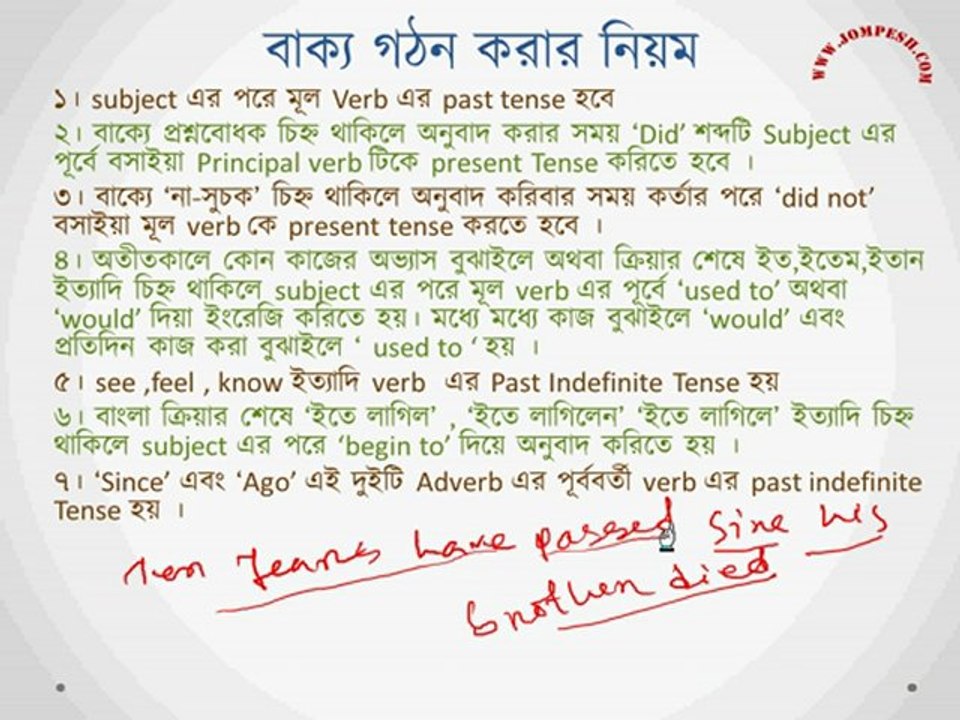 বাক্য গঠন করার নিয়ম
WWW.JOMPESH.COM
১। subject এর পরে মূল Verb এর past tense হবে
২। বাক্যে প্রশ্নবোধক চিহ্ন থাকিলে অনুবাদ করার সময় ‘Did’ শব্দটি Subject এর
পূর্বে বসাইয়া Principal verb টিকে present Tense করিতে হবে ।
৩। বাক্যে ‘না-সুচক’ চিহ্ন থাকিলে অনুবাদ করিবার সময় কর্তার পরে ‘did not’
বসাইয়া মূল verb কে present tense করতে হবে ।
৪। অতীতকালে কোন কাজের অভ্যাস বুঝাইলে অথবা ক্রিয়ার শেষে ইত,ইতেম,ইতান
ইত্যাদি চিহ্ন থাকিলে subject এর পরে মূল verb এর পূর্বে ‘used to’ অথবা
‘would’ দিয়া ইংরেজি করিতে হয়। মধ্যে মধ্যে কাজ বুঝাইলে ‘would’ এবং
প্রতিদিন কাজ করা বুঝাইলে ‘ used to ‘ হয় ।
৫। see ,feel , know ইত্যাদি verb এর Past Indefinite Tense হয়
৬। বাংলা ক্রিয়ার শেষে ‘ইতে লাগিল’ , ‘ইতে লাগিলেন’ ‘ইতে লাগিলে’ ইত্যাদি চিহ্ন
থাকিলে subject এর পরে ‘begin to’ দিয়ে অনুবাদ করিতে হয় ।
৭। ‘Since’ এবং ‘Ago’ এই দুইটি Adverb এর পূর্ববর্তী verb এর past indefinite
Tense হয় ।
Ten years have passed Sine his
brother died